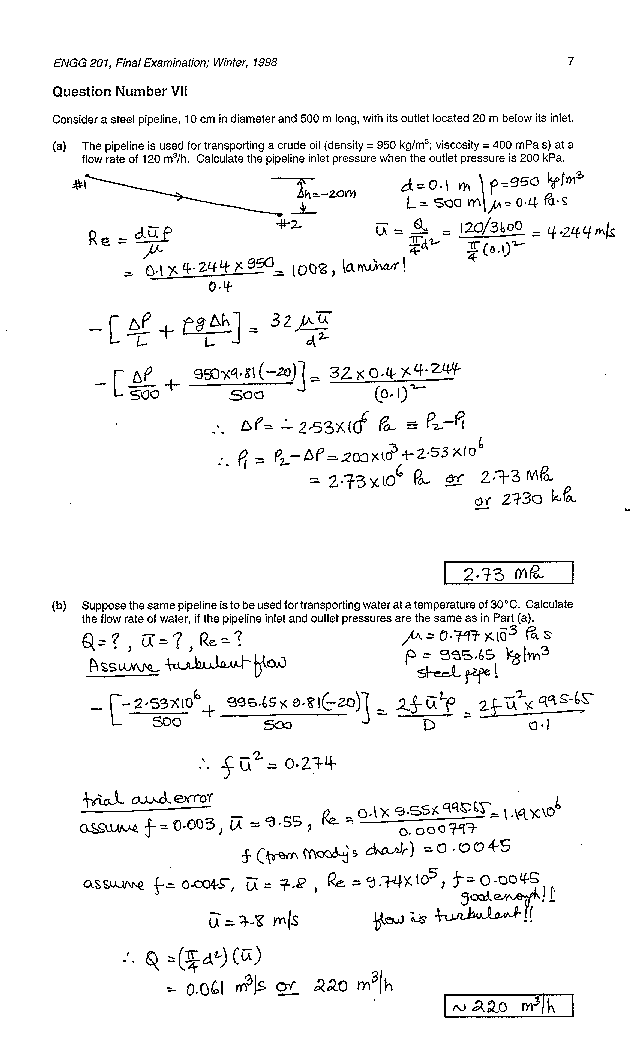 ENGG 201, Final Examination; Winter, 1998 7
Question Number VII
Consider a steel pipeline, 10 cm in diameter and 500 m long, with its outlet located 20 m below its inlet.
(a) The pipeline is used for transporting a crude oil (density = 950 kg/m³; viscosity = 400 mPa s) at a
flow rate of 120 m³/h. Calculate the pipeline inlet pressure when the outlet pressure is 200 kPa.
#1 Δh=-20m d=0.1 m ρ=950 kg/m³
#2 L = 500 m μ=0.4 Pa·s
Re = dūρ/μ ū = Q/(π/4 d²) = (120/3600)/(π/4 (0.1)²) = 4.244 m/s
= (0.1 × 4.244 × 950)/0.4 = 1008, laminar!
-[ΔP/L + ρgΔh/L] = 32 μū/d²
-[ΔP/500 + 950×9.81(-20)/500] = (32 × 0.4 × 4.244)/(0.1)²
∴ ΔP = -2.53×10⁶ Pa = P₂-P₁
∴ P₁ = P₂-ΔP = 200×10³+2.53×10⁶
= 2.73×10⁶ Pa or 2.73 MPa
or 2730 kPa
2.73 MPa
(b) Suppose the same pipeline is to be used for transporting water at a temperature of 30°C. Calculate
the flow rate of water, if the pipeline inlet and outlet pressures are the same as in Part (a).
Q=?, ū=?, Re=? μ = 0.797 ×10⁻³ Pa s
Assume turbulent flow ρ = 995.65 kg/m³
steel pipe!
-[-2.53×10⁶/500 + 995.65×9.81(-20)/500] = 2fū²ρ/D = 2fū²×995.65/0.1
∴ fū² = 0.274
trial and error
assume f = 0.003, ū = 9.55, Re = (0.1×9.55×995.65)/0.000797 = 1.19×10⁶
f (from Moody's chart) = 0.0045
assume f = 0.0045, ū = 7.8, Re = 9.74×10⁵, f = 0.0045
good enough!!
ū = 7.8 m/s flow is turbulent!!
∴ Q = (π/4 d²)(ū)
= 0.061 m³/s or 220 m³/h
~220 m³/h